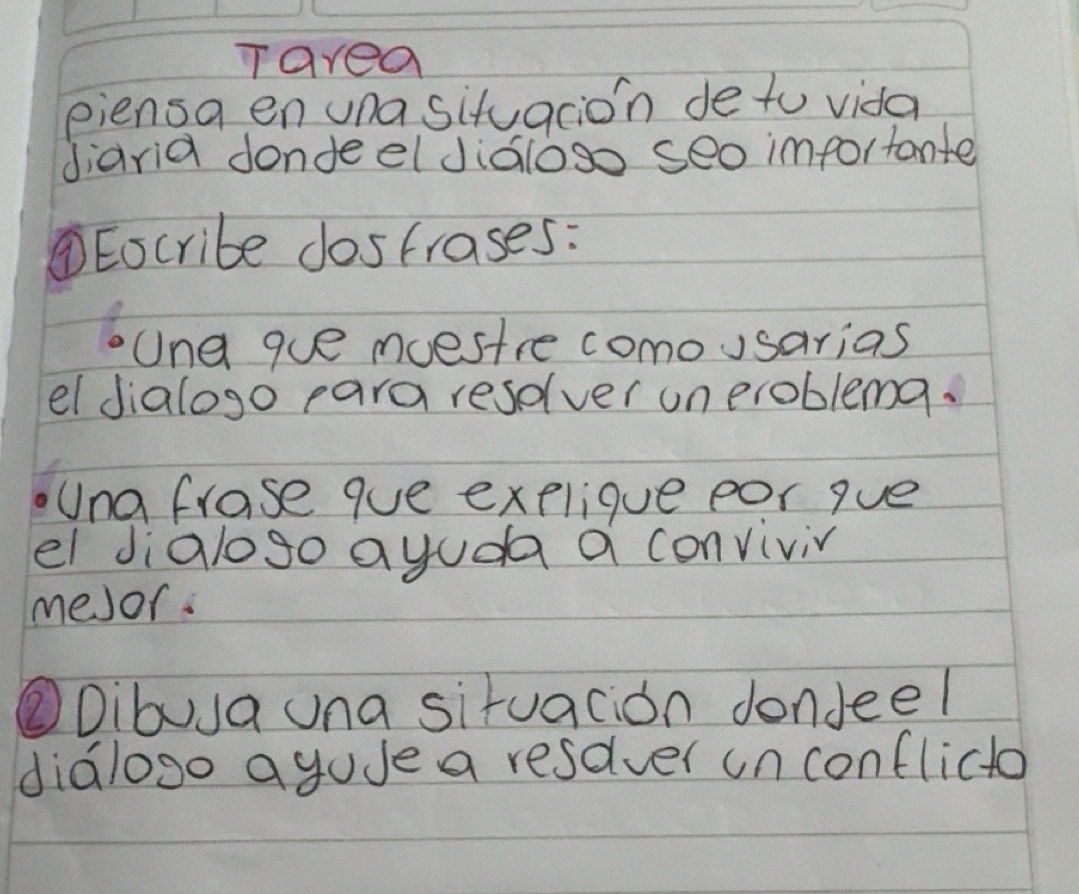 Tarea
piensa en una situación de tu vida
diaria donde el diálogo sea importante
① Escribe dos frases:
• Una que muestre como usarias
el dialogo para resolver un problema.
• Una frase que explique por que
el dialogo ayuda a convivir
mejor.
② Dibuja una situación donde el
diálogo ayude a resolver un conflicto